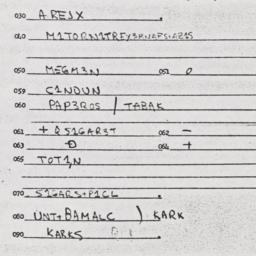 030 A RE1X
040 M1TORN1TREY3RNAPS1AZ1S
050 MEGM3N 051 0
059 C1NDUN
060 PAP3ROS / TABAK
061 + R S1GAR3T 062 –
063 0 064 +
065 TOT1N
070 S1GARS+P1CL
080 UNT+BAMALC ) KARK
090 KARKS